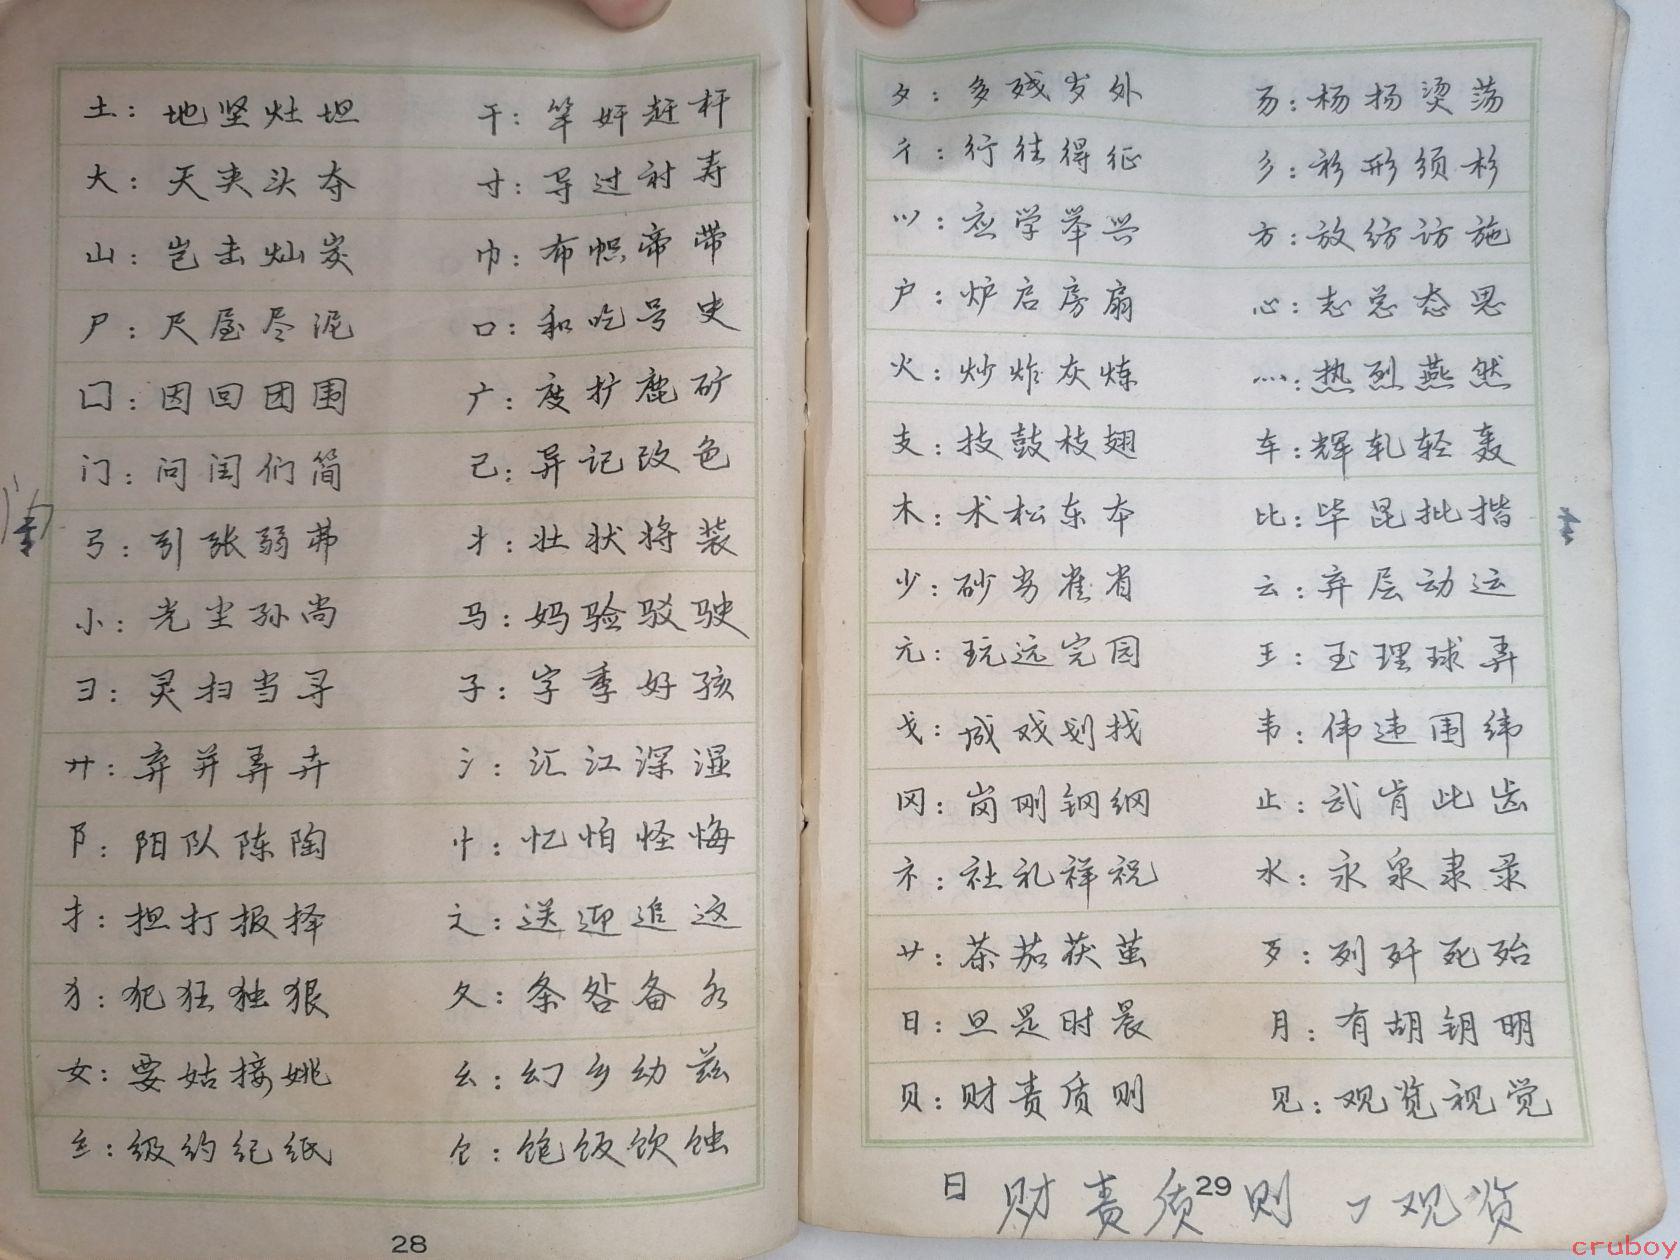 土：地坚灶坦 干：竿奸赶杆
大：天夹头夺 寸：导过衬寿
山：岂击灿炭 巾：布帜帝带
尸：尺屋尽泥 口：和吃号史
囗：因回团围 广：度扩鹿矿
门：问闰们简 己：异记改色
弓：引张弱弗 丬：壮状将装
小：光尘孙尚 马：妈验驳驶
彐：灵扫当寻 子：字季好孩
廾：弃并弄卉 氵：汇江深湿
阝：阳队陈陶 忄：忆怕怪悔
扌：担打报择 辶：送迎追这
犭：犯狂独狠 夂：条咎备务
女：要姑接姚 幺：幻乡幼兹
纟：级约纪纸 饣：饱饭饮蚀
28
夕：多残岁外 𠃓：杨扬烫荡
彳：行往得征 彡：衫形须杉
⺍：应学举兴 方：放纺访施
户：炉启房扇 心：志总态思
火：炒炸灰炼 灬：热烈燕然
支：技鼓枝翅 车：辉轧轻轰
木：术松东本 比：毕昆批揩
少：砂劣雀省 云：弃层动运
元：玩远完园 王：玉理球弄
戈：成戏划找 韦：伟违围纬
冈：岗刚钢纲 止：武肯此齿
礻：社礼祥祝 水：永泉隶录
艹：茶茄茯茧 歹：列歼死殆
日：旦是时晨 月：有胡钥明
贝：财责质则 见：观览视觉
29
日 财责质则 观览
cruboy